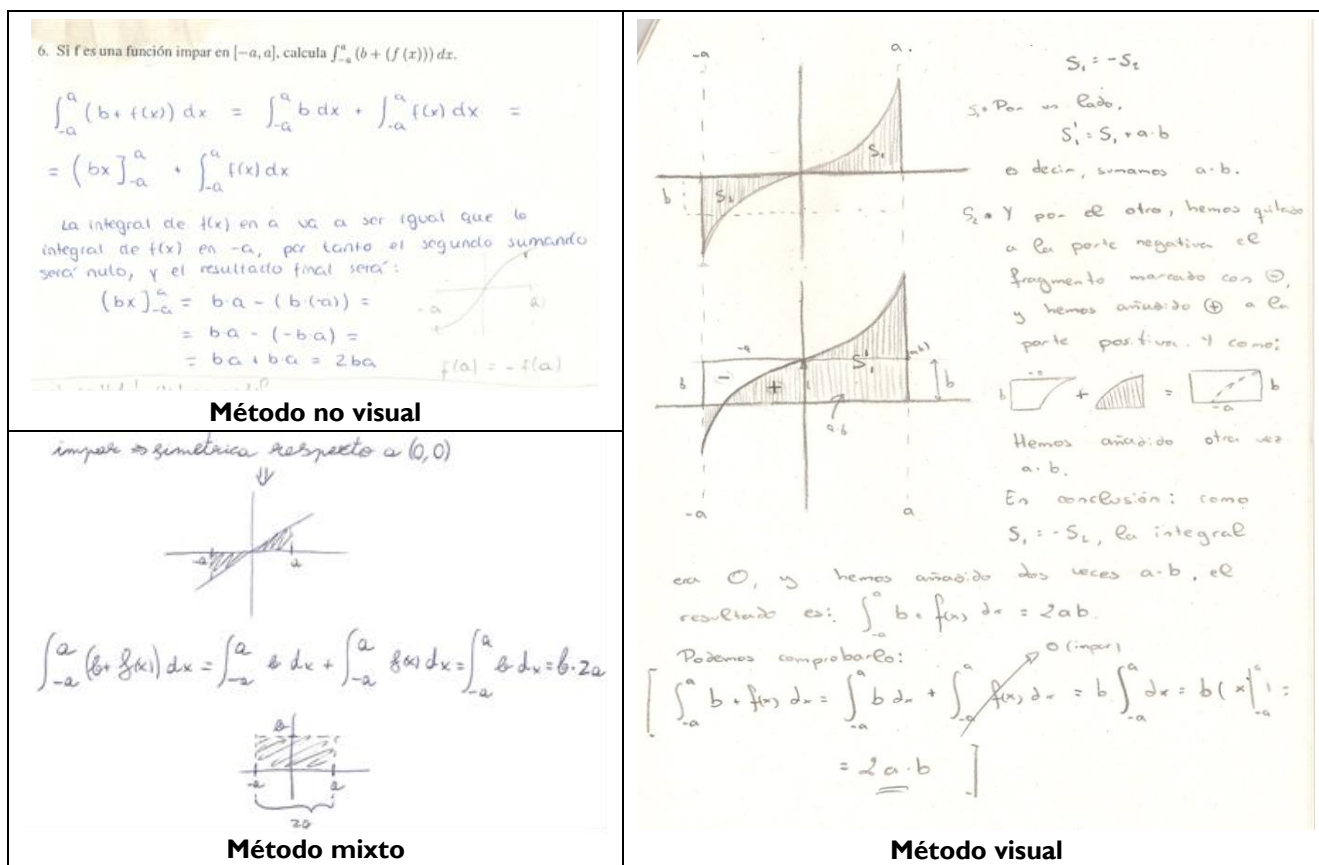 6. Si f es una función impar en [−a, a], calcula ∫_{-a}^{a} (b + (f (x))) dx.
∫_{-a}^{a} (b + f(x)) dx = ∫_{-a}^{a} b dx + ∫_{-a}^{a} f(x) dx =
= (bx]_{-a}^{a} + ∫_{-a}^{a} f(x) dx
La integral de f(x) en a va a ser igual que la
integral de f(x) en -a, por tanto el segundo sumando
será nulo, y el resultado final será:
(bx]_{-a}^{a} = b·a - (b·(-a)) =
= b·a - (-b·a) =
= ba + b·a = 2ba
-a a
f(a) = -f(a)
Método no visual
impar ⇒ simétrica respecto a (0,0)
⇓
-a a
∫_{-a}^{a} (b + f(x)) dx = ∫_{-a}^{a} b dx + ∫_{-a}^{a} f(x) dx = ∫_{-a}^{a} b dx = b·2a
b
-a a
2a
Método mixto
-a a.
S₁
b S₂
-a
b - + S₁' b
a·b
-a a
S₁ = -S₂
S₁• Por un lado,
S₁' = S₁ + a·b
es decir, sumamos a·b.
S₂• Y por el otro, hemos quitado
a la parte negativa el
fragmento marcado con ⊖,
y hemos añadido ⊕ a la
parte positiva. Y como:
b + = b
-a
Hemos añadido otra vez
a·b.
En conclusión: como
S₁ = -S₂, la integral
era 0, y hemos añadido dos veces a·b, el
resultado es: ∫_{-a}^{a} b + f(x) dx = 2ab.
Podemos comprobarlo:
0 (impar)
[ ∫_{-a}^{a} b + f(x) dx = ∫_{-a}^{a} b dx + ∫_{-a}^{a} f(x) dx = b ∫_{-a}^{a} dx = b (x|_{-a}^{a}) =
= 2a·b ]
Método visual